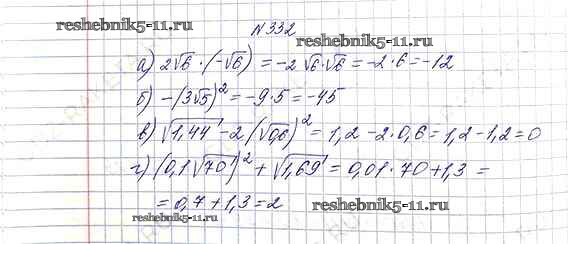 N332
reshebnik5-11.ru
reshebnik5-11.ru
а) 2√6·(-√6) = -2√6·√6 = -2·6 = -12
б) -(3√5)² = -9·5 = -45
в) √1,44 - 2(√0,6)² = 1,2 - 2·0,6 = 1,2 - 1,2 = 0
г) (0,1√70)² + √1,69 = 0,01·70 + 1,3 =
= 0,7 + 1,3 = 2
reshebnik5-11.ru
reshebnik5-11.ru